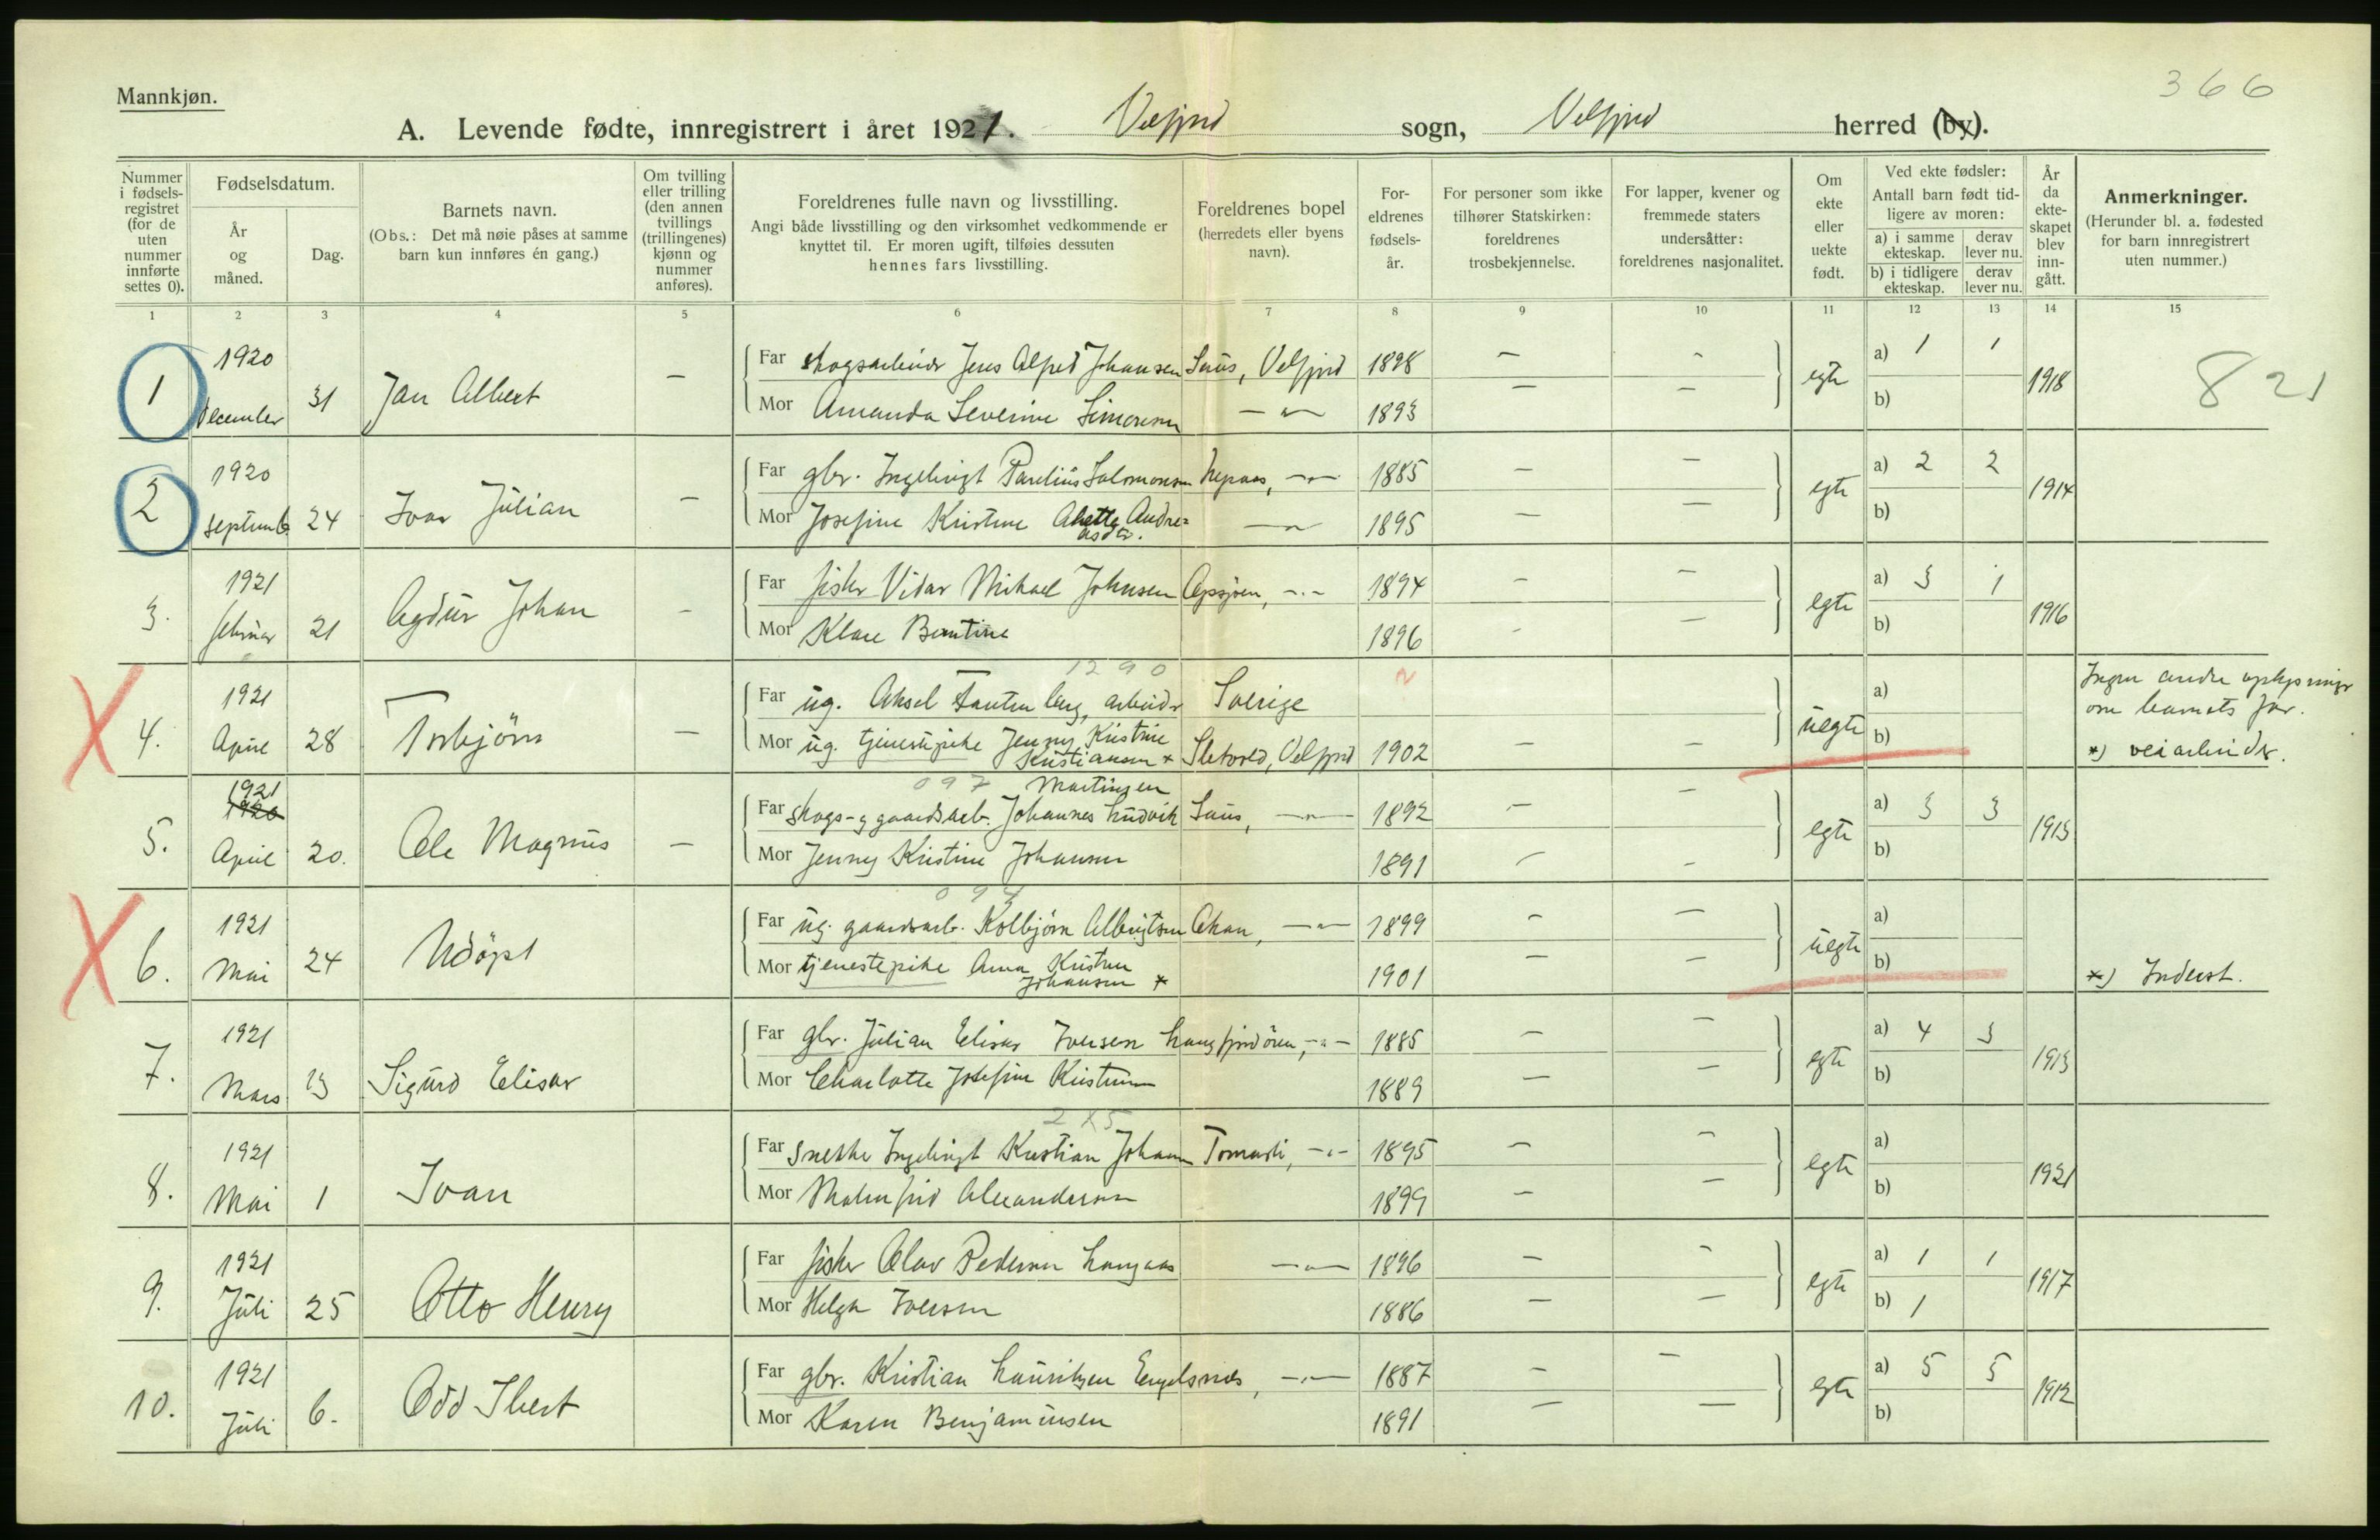 366
Mannkjøn.
A. Levende fødte, innregistrert i året 1921. Velfjord sogn, Velfjord herred (by).
Nummer i fødselsregistret (for de uten nummer innførte settes 0).
Fødselsdatum.
År og måned.
Dag.
Barnets navn.
(Obs.: Det må nøie påses at samme barn kun innføres én gang.)
Om tvilling eller trilling (den annen tvillings (trillingenes) kjønn og nummer anføres).
Foreldrenes fulle navn og livsstilling.
Angi både livsstilling og den virksomhet vedkommende er knyttet til. Er moren ugift, tilføies dessuten hennes fars livsstilling.
Foreldrenes bopel (herredets eller byens navn).
Foreldrenes fødselsår.
For personer som ikke tilhører Statskirken: foreldrenes trosbekjennelse.
For lapper, kvener og fremmede staters undersåtter: foreldrenes nasjonalitet.
Om ekte eller uekte født.
Ved ekte fødsler:
Antall barn født tidligere av moren:
a) i samme ekteskap.
derav lever nu.
b) i tidligere ekteskap.
derav lever nu.
År da ekteskapet blev inngått.
Anmerkninger.
(Herunder bl. a. fødested for barn innregistrert uten nummer.)
1 2 3 4 5 6 7 8 9 10 11 12 13 14 15
1 1920 december 31 Jan Albert —
Far skogsarbeider Jens Alfred Johansen Saus, Velfjord 1898 — — egte a) 1 1 1918 821
Mor Amanda Severine Simonsen — " — 1893 — — b)
2 1920 septemb. 24 Ivar Julian —
Far gbr. Ingebrigt Parelius Salomonsen — " — 1885 — — egte a) 2 2 1914
Mor Josefine Kristine Andreasdtr. — " — 1895 — — b)
3. 1921 februar 21 Agdur Johan —
Far fisker Vidar Mikael Johnsen — " — 1894 — — egte a) 3 1 1916
Mor Klare Berntine 1896 — — b)
4. 1921 April 28 Torbjörn —
1290
Far ug. Aksel arbeider Sverige uegte a) Ingen andre oplysninger om barnets far.
Mor ug. tjenestepike Jenny Kristine Kristiansen * Sletvold, Velfjord 1902 — — b) *) veiarbeider.
5. 1921 1920 April 20. Ole Magnus —
097 Martinsen
Far skogs- og gaardsarb. Johannes Ludvik Saus, — " — 1892 — — egte a) 3 3 1913
Mor Jenny Kristine Johansen 1891 — — b)
6. 1921 Mai 24 Udöpt
094
Far ug. gaardsarb. Kolbjörn Albrigtsen — " — 1899 — — uegte a)
Mor tjenestepike Anna Kristine Johansen * 1901 — — b) *) Inderst.
7. 1921 Mars 13 Sigurd Elisar
Far gbr. Julian Elisar Iversen Langfjordören, — " — 1885 — — egte a) 4 3 1913
Mor Charlotte Josefine Kristensen 1889 — — b)
8. 1921 Mai 1 Ivan
Far snekker Ingebrigt Kristian Johansen — " — 1895 — — egte a) 1921
Mor Malmfrid Alexandersen 1899 — — b)
9. 1921 Juli 25 Otto Henry
Far fisker Olav Pedersen Langaas — " — 1896 — — egte a) 1 1 1917
Mor Helga Iversen 1886 — — b) 1
10. 1921 Juli 6. Odd Ibert
Far gbr. Kristian Lauritzen Engelsnæs, — " — 1887 — — egte a) 5 5 1912
Mor Karen Benjaminsen 1891 — — b)